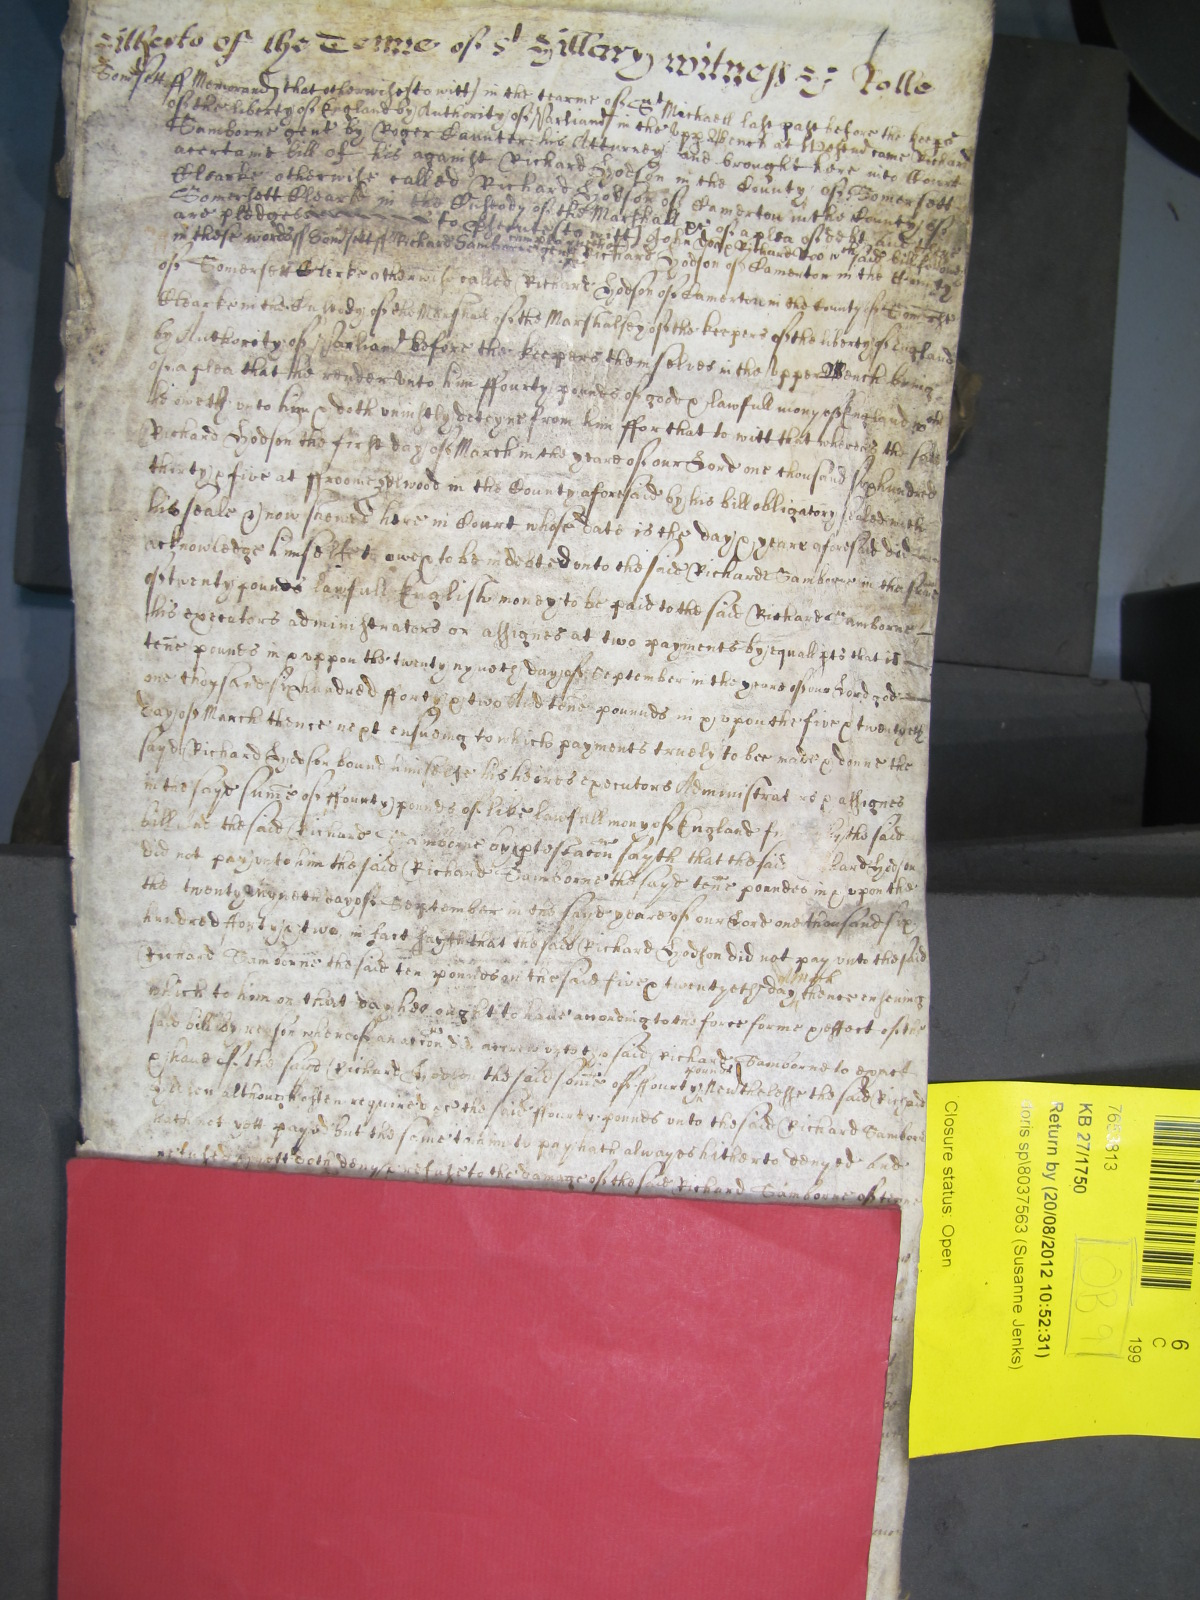 of the Terme of St Hillary witnes H Rolle
Somsett ss Memorand that otherwise to witt in the tearme of Snt Michaell last past before the keeps
of the liberty of England by Authority of Parliamt in the Upp Bench at Westm came Richard
Samborne gent by Roger Caunter his Atturney And brought here into Court
a certame bill of his against Richard Hodson in the County of Somersett
Clearke otherwise called Richard Hodson of Camerton in the County of
Somersett Clearke in the Custody of the Marshall &c of a plea of debt And there
are pledges to psecute to witt John Doe & Richard Roo wch said bill followes
in these words ss Somsett ss Richard Samborne gent complaynes of Richard Hodson of Camerton in the County
of Somersett Clerke otherwise called Richard Hodson of Camerton in the County of Somersett
Clearke in the Custody of the Marshall of the Marshalsey of the keepers of the liberty of England
by Authority of Parliamt before the keepers themselves in the Upper Bench being
of a plea that he render unto him ffourty pounds of good & lawfull mony of England wch
he oweth unto him & doth uniustly deteyne from him ffor that to witt that whereas the said
Richard Hodson the first day of March in the yeare of our Lord one thousand six hundred
thirty & five at ffroome Zelwood in the County aforesaid by his bill obligatory sealed with
his seale & now shewed here in Court whose date is the day & yeare aforesaid did
acknowledge himselfe to owe & to be indebted unto the said Richard Samborne in the sume
of twenty pounds lawfull English money to be paid to the said Richard Samborne
his executors administrators or assignes at two payments by equall pts that is
tenne pounds in & uppon the twenty nyneth day of September in the yeare of our Lord god
one thousand six hundred fforty & two And tenne pounds in & upon the five & twentyeth
day of March thence next ensueing to which payments truely to bee made & donne the
sayd Richard Hodson bound himselfe his heires executors Administrat rs & assignes
in the sayd sume of ffourty pounds of like lawfull mony of England by the said
bill the said Richard Samborne by ptestacon sayth that the said Hodson
did not pay unto him the said Richard Samborne the sayd tenne poundes in & upon the
the twenty nyneth day of September in the sayd yeare of our Lord one thousand six
hundred fforty & two in fact sayth that the said Richard Hodson did not pay unto the said
Richard Samborne the said ten pounds on the said five & twentyeth day of March thence ensueing
which to him on that day hee ought to have according to the force forme & effect of the
said bill By reason whereof an accon did accrew to the said Richard Samborne to exact
& have of the said Richard Hodson the said some of ffourty pounds Neverthelesse the said Richard
Hodson although often required the said ffourty pounds unto the said Richard Samborne
hath not yett payd But the same to him to pay hath alwayes hitherto denyed and
doth deny & refuse to the damage of the said Richard Samborne of tenne
7683813
KB 27/1750
Return by (20/08/2012 10:52:31)
loris sp\8037563 (Susanne Jenks)
Closure status: Open
6
C
199